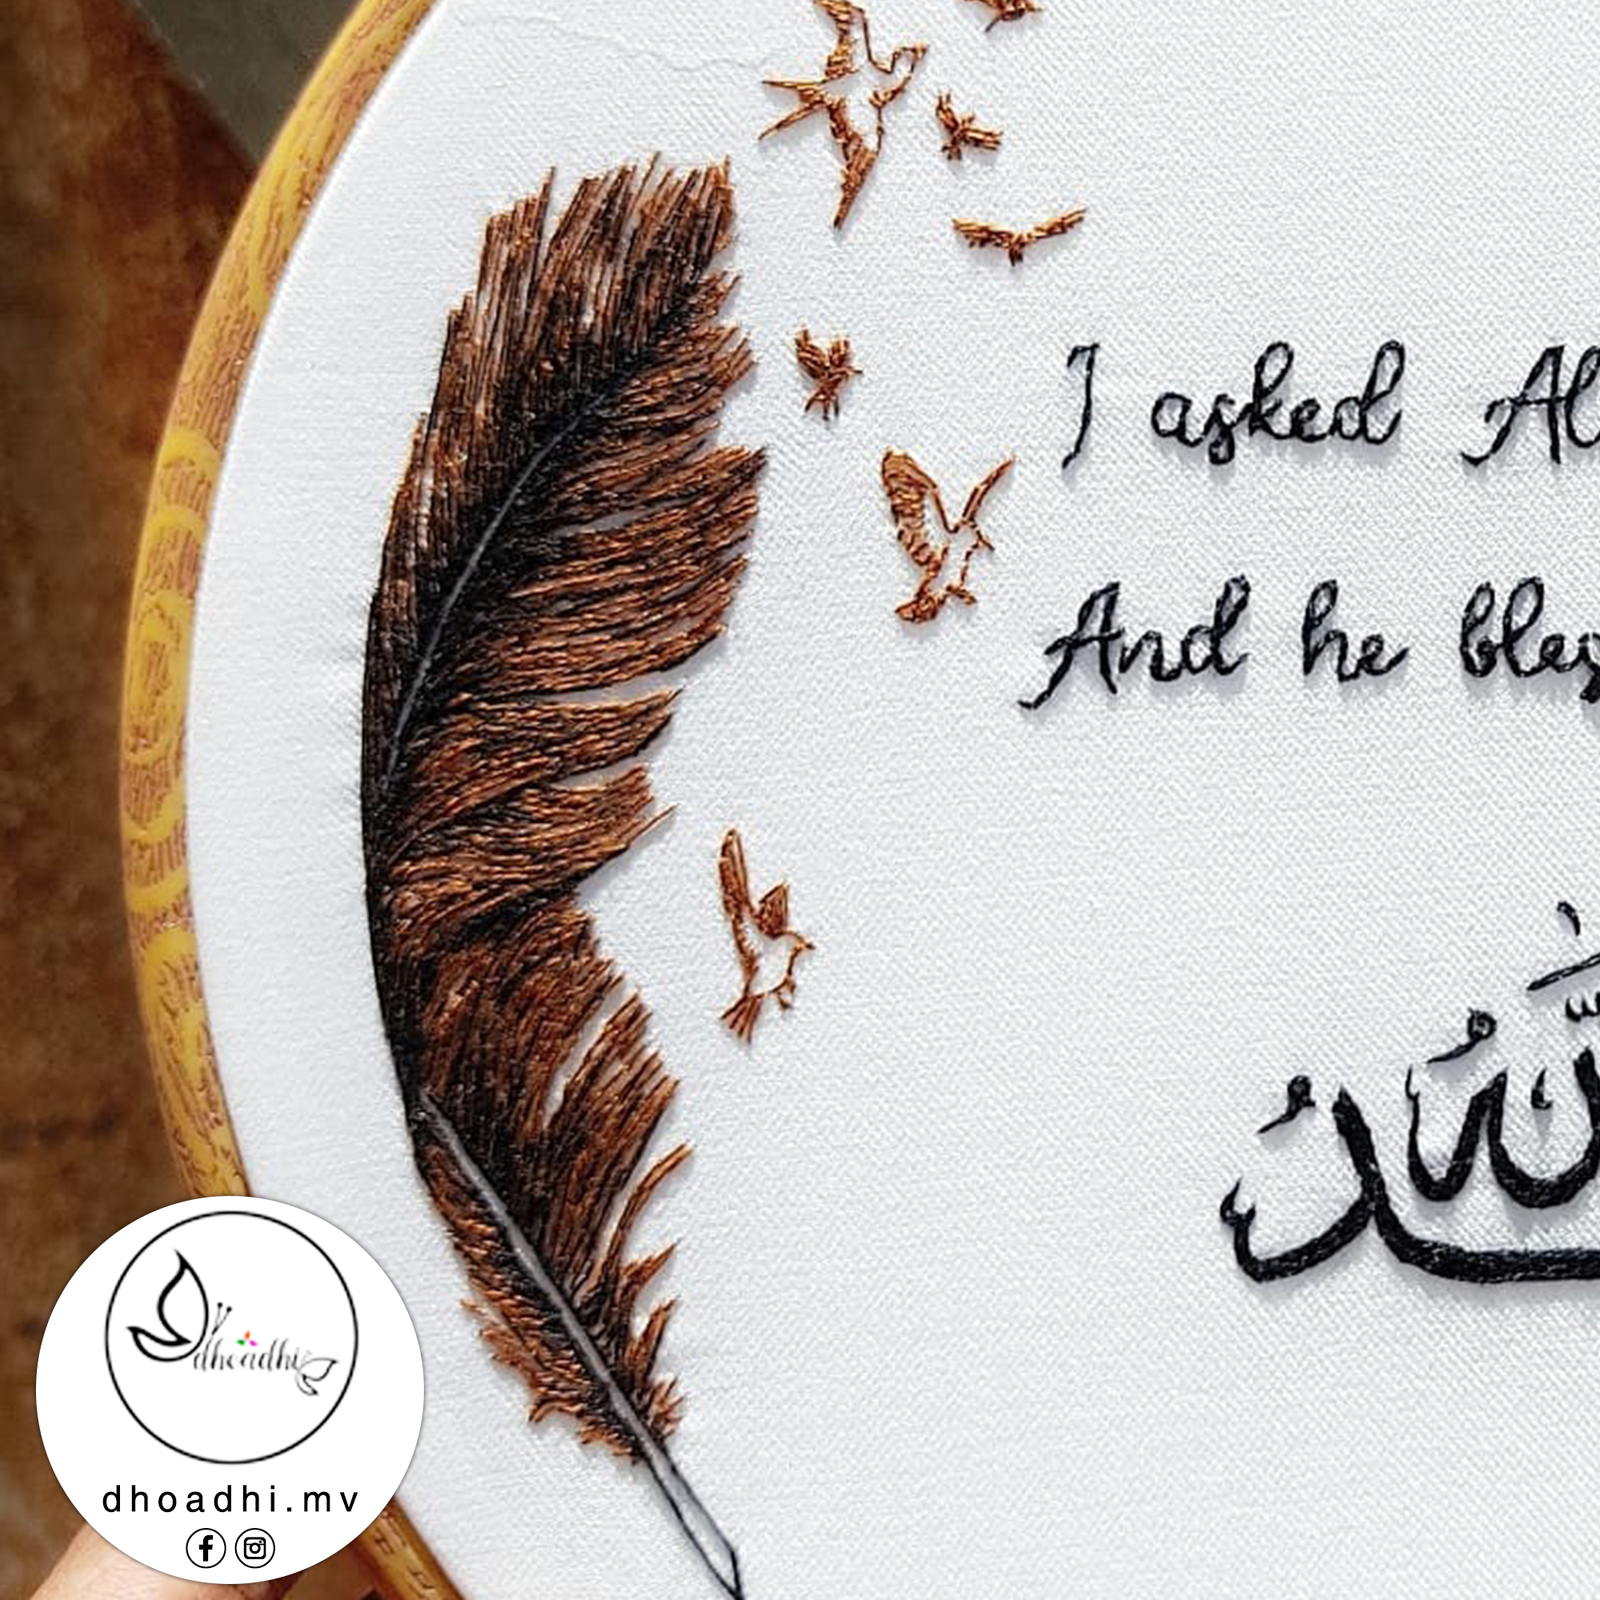 I asked Al
And he bles
الحمد لله
dhoadhi
dhoadhi.mv